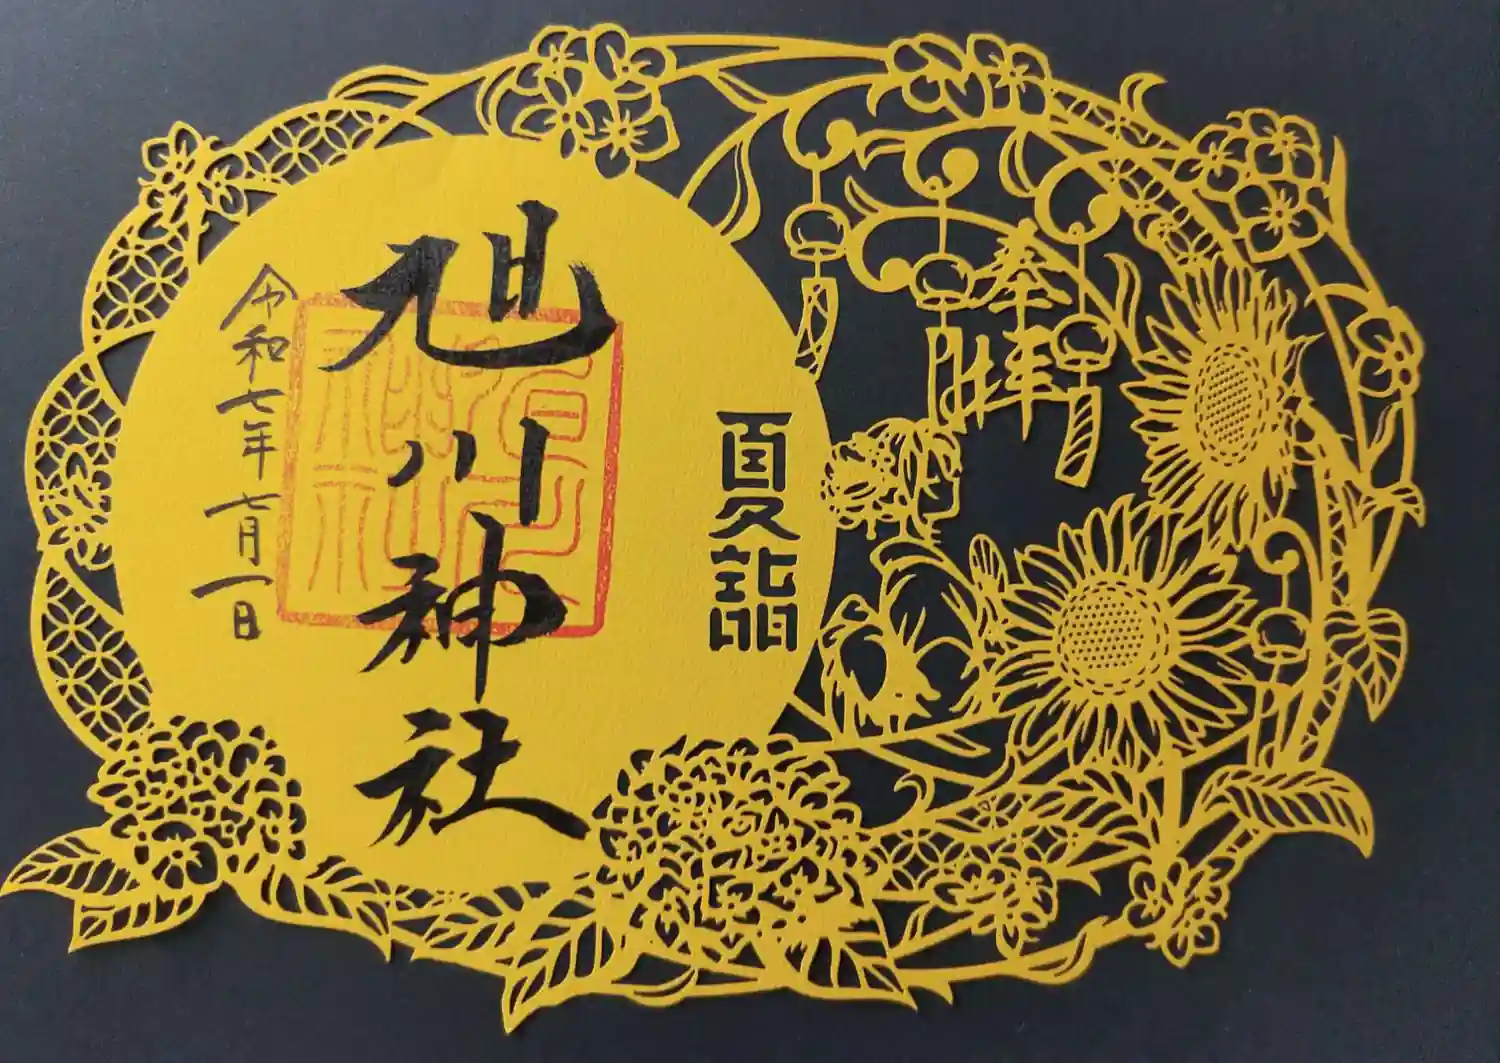 奉拝
夏詣
旭川神社
令和七年七月一日